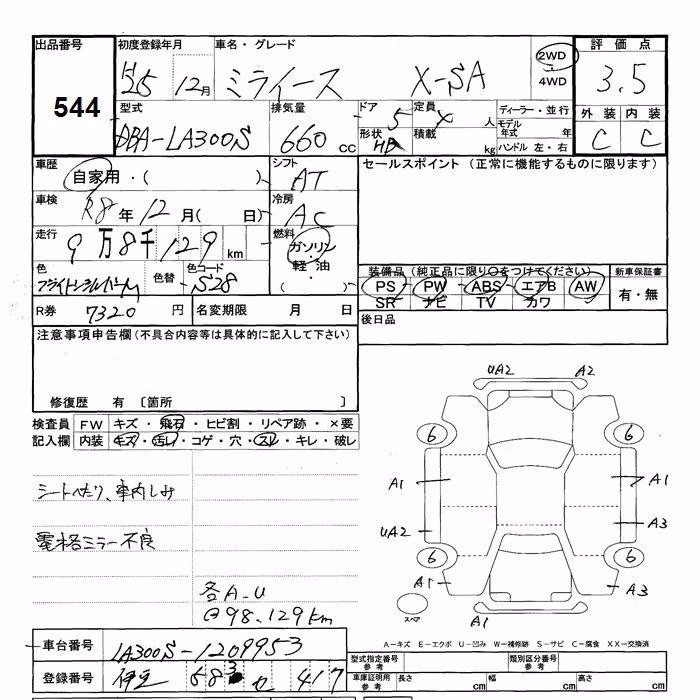 出品番号 初度登録年月 車名・グレード 評価点
544 H25 12月 ミライース X-SA 2WD 4WD 3.5
型式 排気量 ドア 定員 ディーラー・並行 外装 内装
DBA-LA300S 660 cc 5 人 モデル年式 年 C C
形状 積載 kg ハンドル 左・右
車歴 自家用・( ) シフト AT セールスポイント (正常に機能するものに限ります)
車検 R8年12月( 日) 冷房 AC
走行 9万8千129km 燃料 ガソリン・軽油・( )
色 色替 色コード S28
装備品 (純正品に限り○をつけてください) 新車保証書
PS PW ABS エアB AW 有・無
SR ナビ TV カワ
R券 7320円 名変期限 月 日 後日品
注意事項申告欄(不具合内容等は具体的に記入して下さい)
修復歴 有 〔箇所 〕
検査員 FW キズ・飛石・ヒビ割・リペア跡・×要
記入欄 内装 キズ・汚レ・コゲ・穴・スレ・キレ・破レ
UA2 A2
6 6
A1 A1
シートへたり、車内しみ
A3
UA2
電格ミラー不良
6 6
A1 A3
各A.U
スペア A1
@98.129km
A-キズ E-エクボ U-凹み W-補修跡 S-サビ C-腐食 XX-交換済
車台番号 LA300S-1209953
型式指定番号 参考 類別区分番号 参考
登録番号 伊豆 583 か 417
車庫証明用 参考 長さ cm 幅 cm 高さ cm